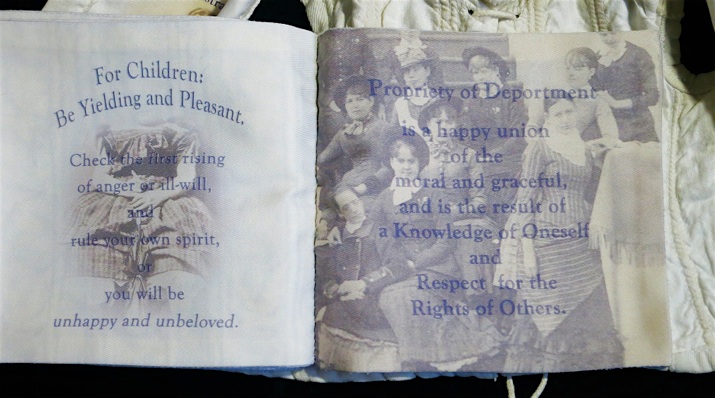 For Children:
Be Yielding and Pleasant.
Check the first rising
of anger or ill-will,
and
rule your own spirit,
or
you will be
unhappy and unbeloved.
Propriety of Deportment
is a happy union
of the
moral and graceful,
and is the result of
a Knowledge of Oneself
and
Respect for the
Rights of Others.